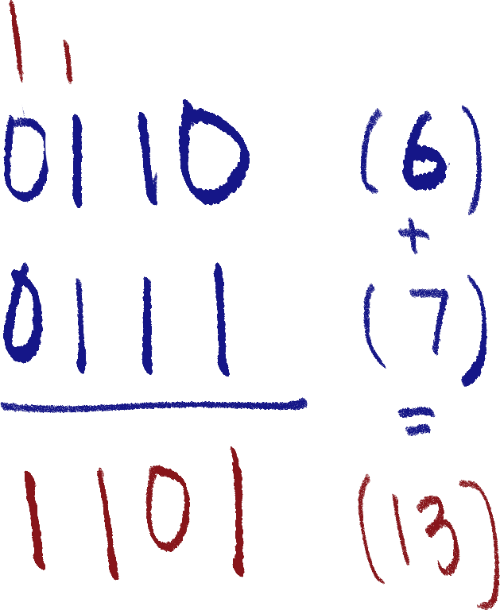 1 1
0110 (6)
+
0111 (7)
=
1101 (13)